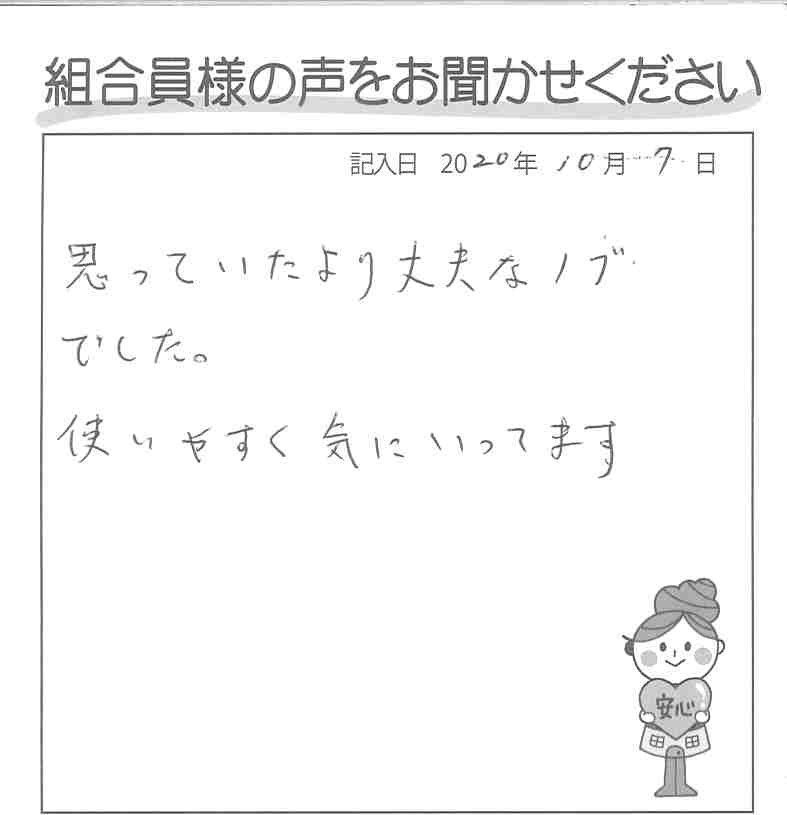 組合員様の声をお聞かせください
記入日 2020年 10月 7日
思っていたより丈夫なノブ
でした。
使いやすく気にいってます
安心